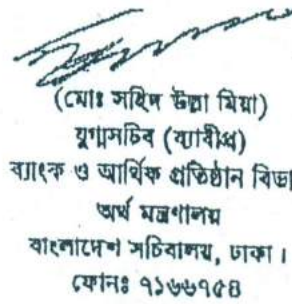 (মোঃ সহিদ উল্লা মিয়া)
যুগ্মসচিব (ব্যাবীপ্র)
ব্যাংক ও আর্থিক প্রতিষ্ঠান বিভা
অর্থ মন্ত্রণালয়
বাংলাদেশ সচিবালয়, ঢাকা।
ফোনঃ ৭১৬৬৭৫৪